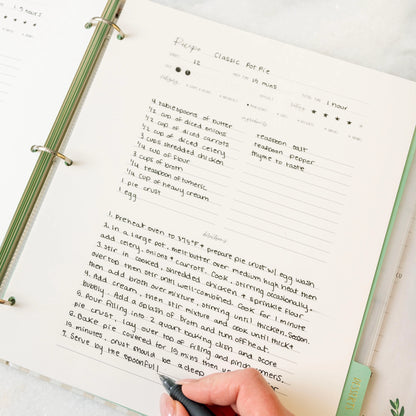 1.5 hours
Recipe Classic Pot Pie
12
15 mins
1 hour
ingredients
4 tablespoons of butter
1/2 cup of diced onions
1/2 cup of diced carrots
1/2 cup of diced celery
3 cups shredded chicken
1/2 cup of flour
3 cups of broth
1/4 teaspoon of tumeric
1/4 cup of heavy cream
1 pie crust
1 egg
teaspoon salt
teaspoon pepper
thyme to taste
directions
1. Preheat oven to 375°F + prepare pie crust w/ egg wash
2. In a large pot, melt butter over medium-high heat then
add celery, onions + carrots. Cook, stirring occasionally.
3. Stir in cooked, shredded chicken + sprinkle flour
overtop, then stir until well-combined. Cook for 1 minute
then add broth over mixture, stirring until thicken. Season
4. Add cream, then stir mixture and cook until thick+
bubbly. Add a splash of broth and turn off heat.
5. Pour filling into 2 quart baking dish and score
pie crust, lay over top of filling and pinch
6. Bake pie covered for 15 mins then
15 minutes, crust should be a deep
9. Serve by the spoonful